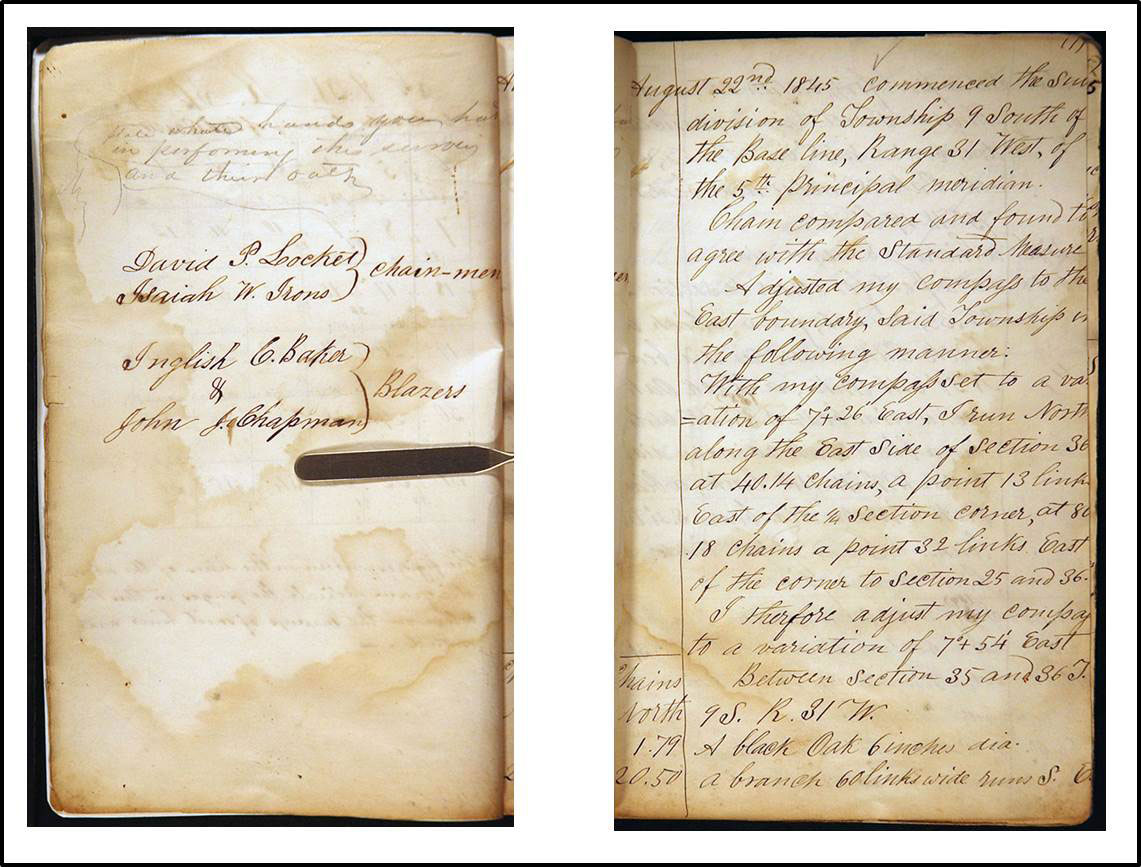 State what hands you had
in perfoming this survey
and their oath
David P. Locket
Isaiah W. Irons
chain-men
Inglish C. Baker
&
John J. Chapman
Blazers
August 22nd 1845 commenced the Su
division of Township 9 South of
the Base line, Range 31 West, of
the 5th principal meridian.
Chain compared and found to
agree with the Standard Measure
Adjusted my Compass to the
East boundary, Said Township in
the following manner:
With my compass set to a va
=ation of 7°+26 East, I run North
along the East Side of Section 36
at 40.14 chains, a point 13 link
East of the ¼ Section corner, at 80
.18 chains a point 32 links East
of the corner to Section 25 and 36.
I therfore adjust my compa
to a variation of 7°+54' East
Between Section 35 and 36 T.
9 S. R. 31 W.
Chains
North
1.79 A black Oak 6 inches dia.
20.50 a branch 60 links wide runs S. E